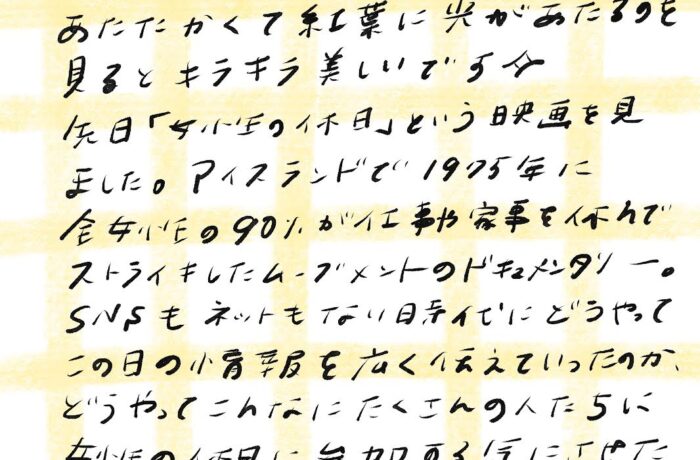 あたたかくて紅葉に光があたるのを
見るとキラキラ美しいですね
先日「女性の休日」という映画を見
ました。アイスランドで1975年に
全女性の90%が仕事や家事を休んで
ストライキしたムーブメントのドキュメンタリー。
SNSもネットもない時代にどうやって
この日の情報を広く伝えていったのか、
どうやってこんなにたくさんの人たちに
女性の休日に参加する気にさせた